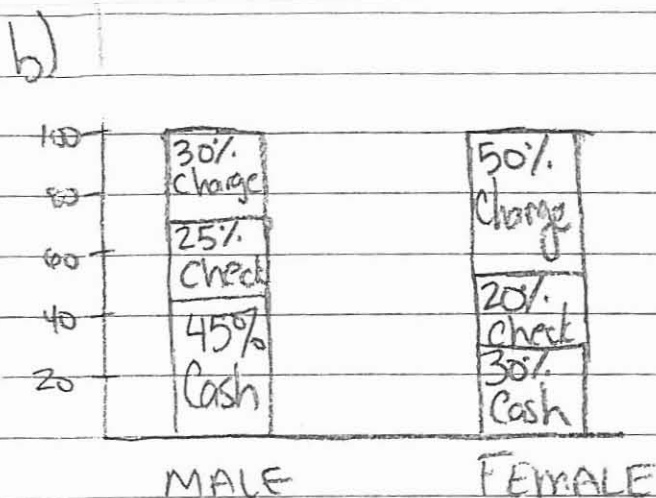 b)
100
80
60
40
20
30%
Charge
25%
Check
45%
Cash
50%
Charge
20%
Check
30%
Cash
MALE
FEMALE